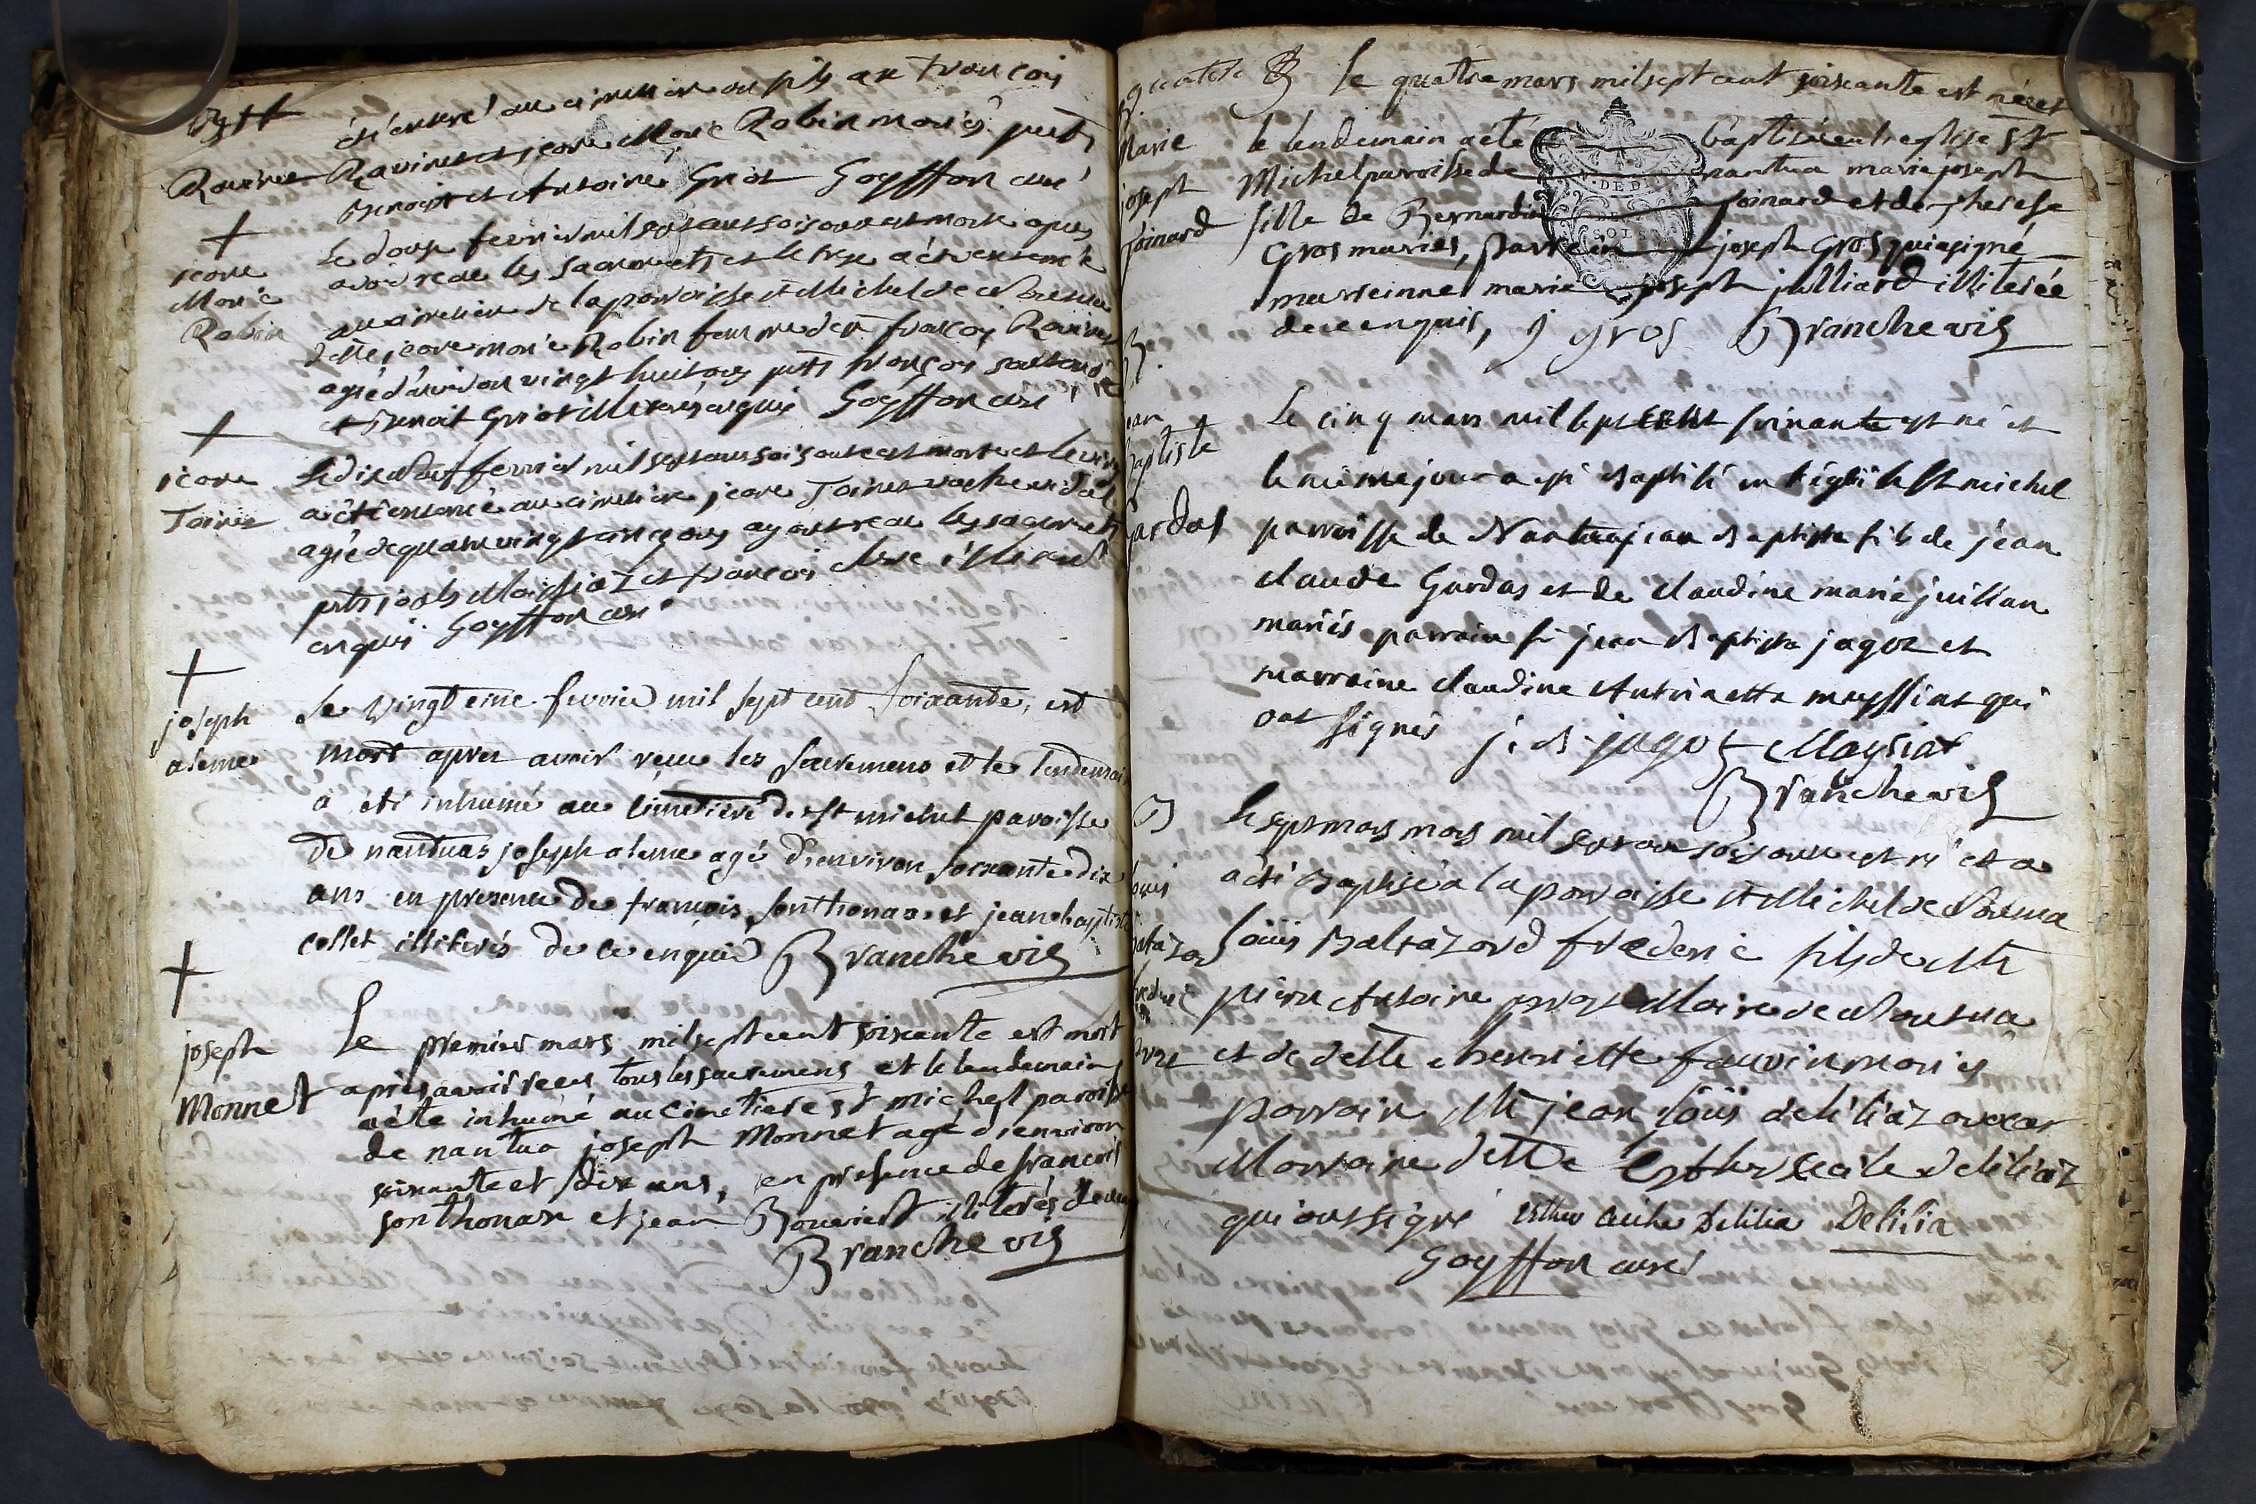 été enterré au cimetiere un fils a françois
Ravinet Ravinet et jeane Marie Robin mariés puts
Benoist et Antoine Griot Goyffon curé
+
jeane
Marie
Robin
Le douze fevrier mil sept cent soisante est morte apres
avoir receu les sacrements et le treze a été enterrée
au cimetiere de la parroisse st Michel de Nantua
dette jeane marie Robin femme de sr françois Ravinet
agée d'environ vingt huit ans puts françois
et Benoit Griot illiterés enquis Goyffon curé
+
jeane
Joinet
Le dixneuf fevrier mil sept cent soisante est morte et le vingt
a été enterrée au cimetiere jeane Joinet
agée de quatre vingt cinq ans ayant receu les sacrements
puts joseph et françois illiterés
enquis Goyffon curé
+
joseph
aleme
Le vingt eme fevrier mil sept cent soixante, est
mort apres avoir reçue les sacremens et le lendemain
a été inhumé au cimetiere de st michel paroisse
de nantuas joseph aleme agé d'environ soixante dix
ans en presence de françois sonthonax et jean baptiste
collet illiterés de ce enquis Branche vic
+
joseph
Monnet
Le premier mars mil sept cent soixante est mort
après avoir reçu tous les sacremens et le lendemain
a été inhumé au cimetiere st michel paroisse
de nantua joseph Monnet agé d'environ
soixante et dix ans, en presence de francois
sonthonax et jean Bouvier illiterés de ce enquis
Branche vic
B
Marie
joseph
Joinard
le quatre mars mil sept cent soixante est née et
le lendemain a été baptisée en l'eglise st
Michel paroisse de nantua marie joseph
fille de Bernardin joinard et de therese
Gros mariés, parrein joseph Gros qui a signé
marreinne marie joseph julliard illiterée
de ce enquis, j gros Branche vic
B
jean
Baptiste
gardas
Le cinq mars mil sept cent soixante est né et
le même jour a été Baptisé en l'église st michel
parroisse de Nantua jean Baptiste fils de jean
claude Gardas et de claudine marie juillan
mariés parrain sr jean Baptiste jagot et
marraine claudine Antoinette mayssiat qui
ont signés j. B. jagot Maysiat
Branche vic
B
Louis
Baltazard
frederic
Le sept mars mil sept cent soisante est né et a
a été Baptisé a la parroisse st Michel de Nantua
Loüis Baltazard frederic fils de Mr
pierre Antoine Maire de Nantua
et de dette henriette fauvin mariés
parrain Mr jean Loüis deliliaz avocat
Marraine dette Esther Cecile deliliaz
qui ont signé esther cecile Delilia Delilia
Goyffon curé